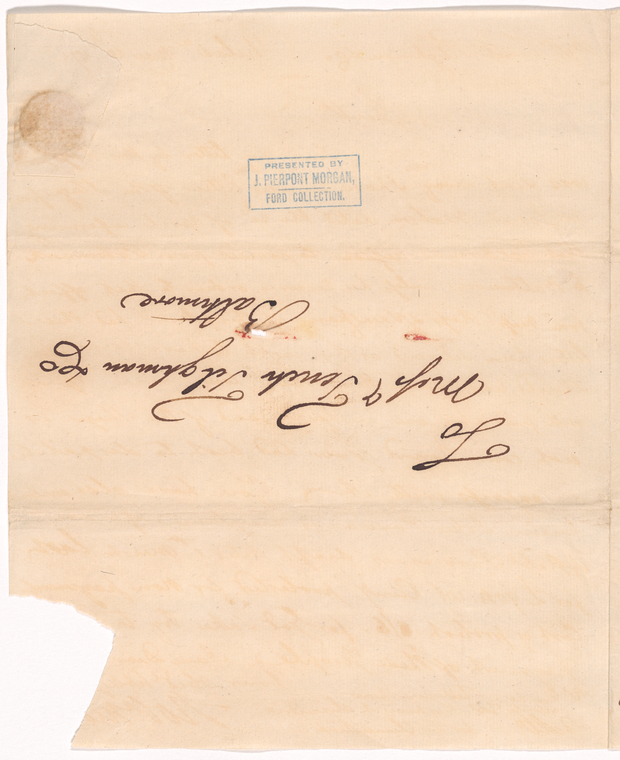 PRESENTED BY
J. PIERPONT MORGAN,
FORD COLLECTION.
To
Mess.rs Tench Tilghman & Co
Baltimore